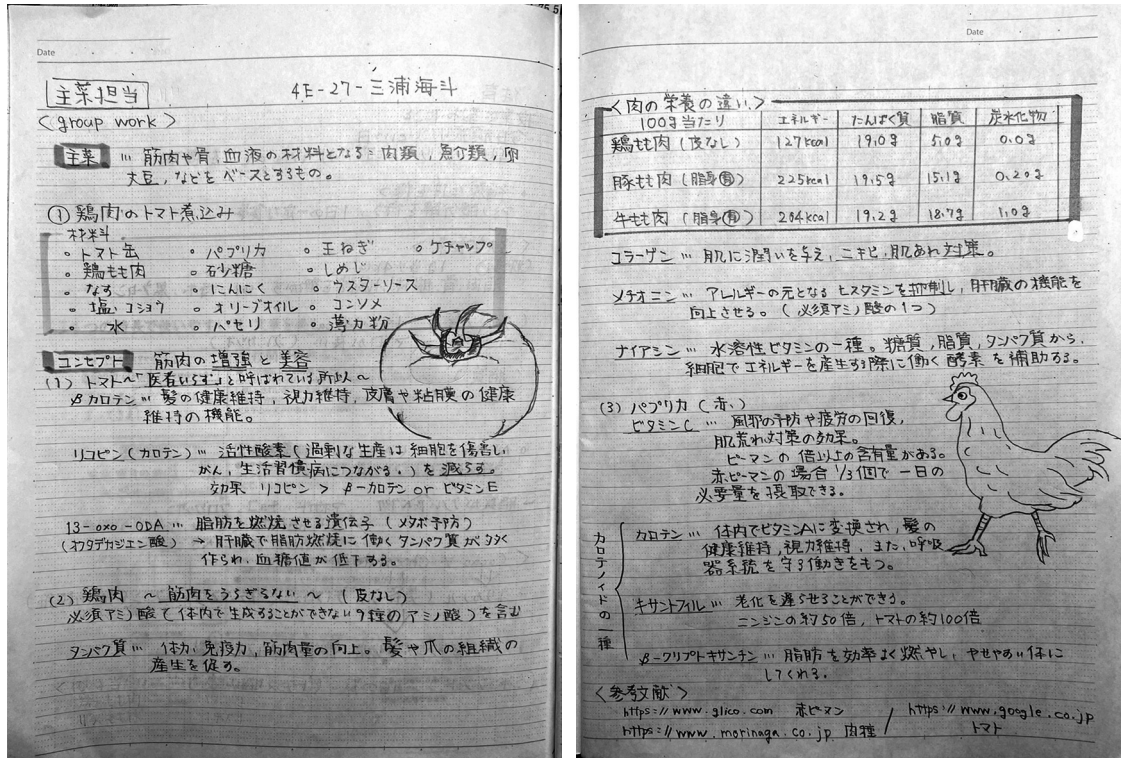 Date
主菜担当
4E-27-三浦海斗
<group work>
主菜 … 筋肉や骨、血液の材料となる：肉類，魚介類，卵
大豆，などをベースとするもの。
① 鶏肉のトマト煮込み
材料
・トマト缶 ・パプリカ ・玉ねぎ ・ケチャップ
・鶏もも肉 ・砂糖 ・しめじ
・なす ・にんにく ・ウスターソース
・塩,コショウ ・オリーブオイル ・コンソメ
・水 ・パセリ ・薄力粉
コンセプト 筋肉の増強と美容
(1) トマト～"医者いらず"と呼ばれている所以～
βカロテン … 髪の健康維持，視力維持，皮膚や粘膜の健康
維持の機能。
リコピン(カロテン) … 活性酸素(過剰な生産は細胞を傷害し
がん，生活習慣病につながる。)を減らす。
効果 リコピン > β-カロテン or ビタミンE
13-oxo-ODA … 脂肪を燃焼させる遺伝子 (メタボ予防)
(オクタデカジエン酸) → 肝臓で脂肪燃焼に働くタンパク質が多く
作られ、血糖値が低下する。
(2) 鶏肉 ～ 筋肉をうらぎらない ～ (皮なし)
必須アミノ酸(体内で生成することができない9種のアミノ酸)を含む
タンパク質 … 体力，免疫力，筋肉量の向上。髪や爪の組織の
産生を促す。
Date
<肉の栄養の違い>
100g当たり エネルギー たんぱく質 脂質 炭水化物
鶏もも肉 (皮なし) 127kcal 19.0g 5.0g 0.0g
豚もも肉 (脂身有) 225kcal 19.5g 15.1g 0.20g
牛もも肉 (脂身有) 204kcal 19.2g 18.7g 1.0g
コラーゲン … 肌に潤いを与え、ニキビ・肌あれ対策。
メチオニン … アレルギーの元となるヒスタミンを抑制し、肝臓の機能を
向上させる。(必須アミノ酸の1つ)
ナイアシン … 水溶性ビタミンの一種。糖質，脂質，タンパク質から，
細胞でエネルギーを産生する際に働く酵素を補助する。
(3) パプリカ (赤)
ビタミンC … 風邪の予防や疲労の回復，
肌荒れ対策の効果。
ピーマンの倍以上の含有量がある。
赤ピーマンの場合 1/3個で一日の
必要量を摂取できる。
カロテノイドの一種
カロテン … 体内でビタミンAに変換され、髪の
健康維持，視力維持，また，呼吸
器系統を守る働きをもつ。
キサントフィル … 老化を遅らせることができる。
ニンジンの約50倍，トマトの約100倍
β-クリプトキサンチン … 脂肪を効率よく燃やし，やせやすい体に
してくれる。
<参考文献>
https://www.glico.com 赤ピーマン / https://www.google.co.jp
https://www.morinaga.co.jp 肉種 トマト